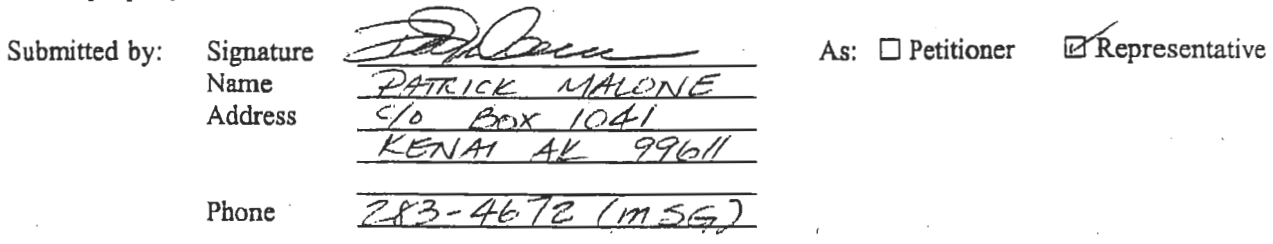 Submitted by: Signature As: ☐ Petitioner ☑ Representative
Name PATRICK MALONE
Address c/o BOX 1041
KENAI AK 99611
Phone 283-4672 (MSG)